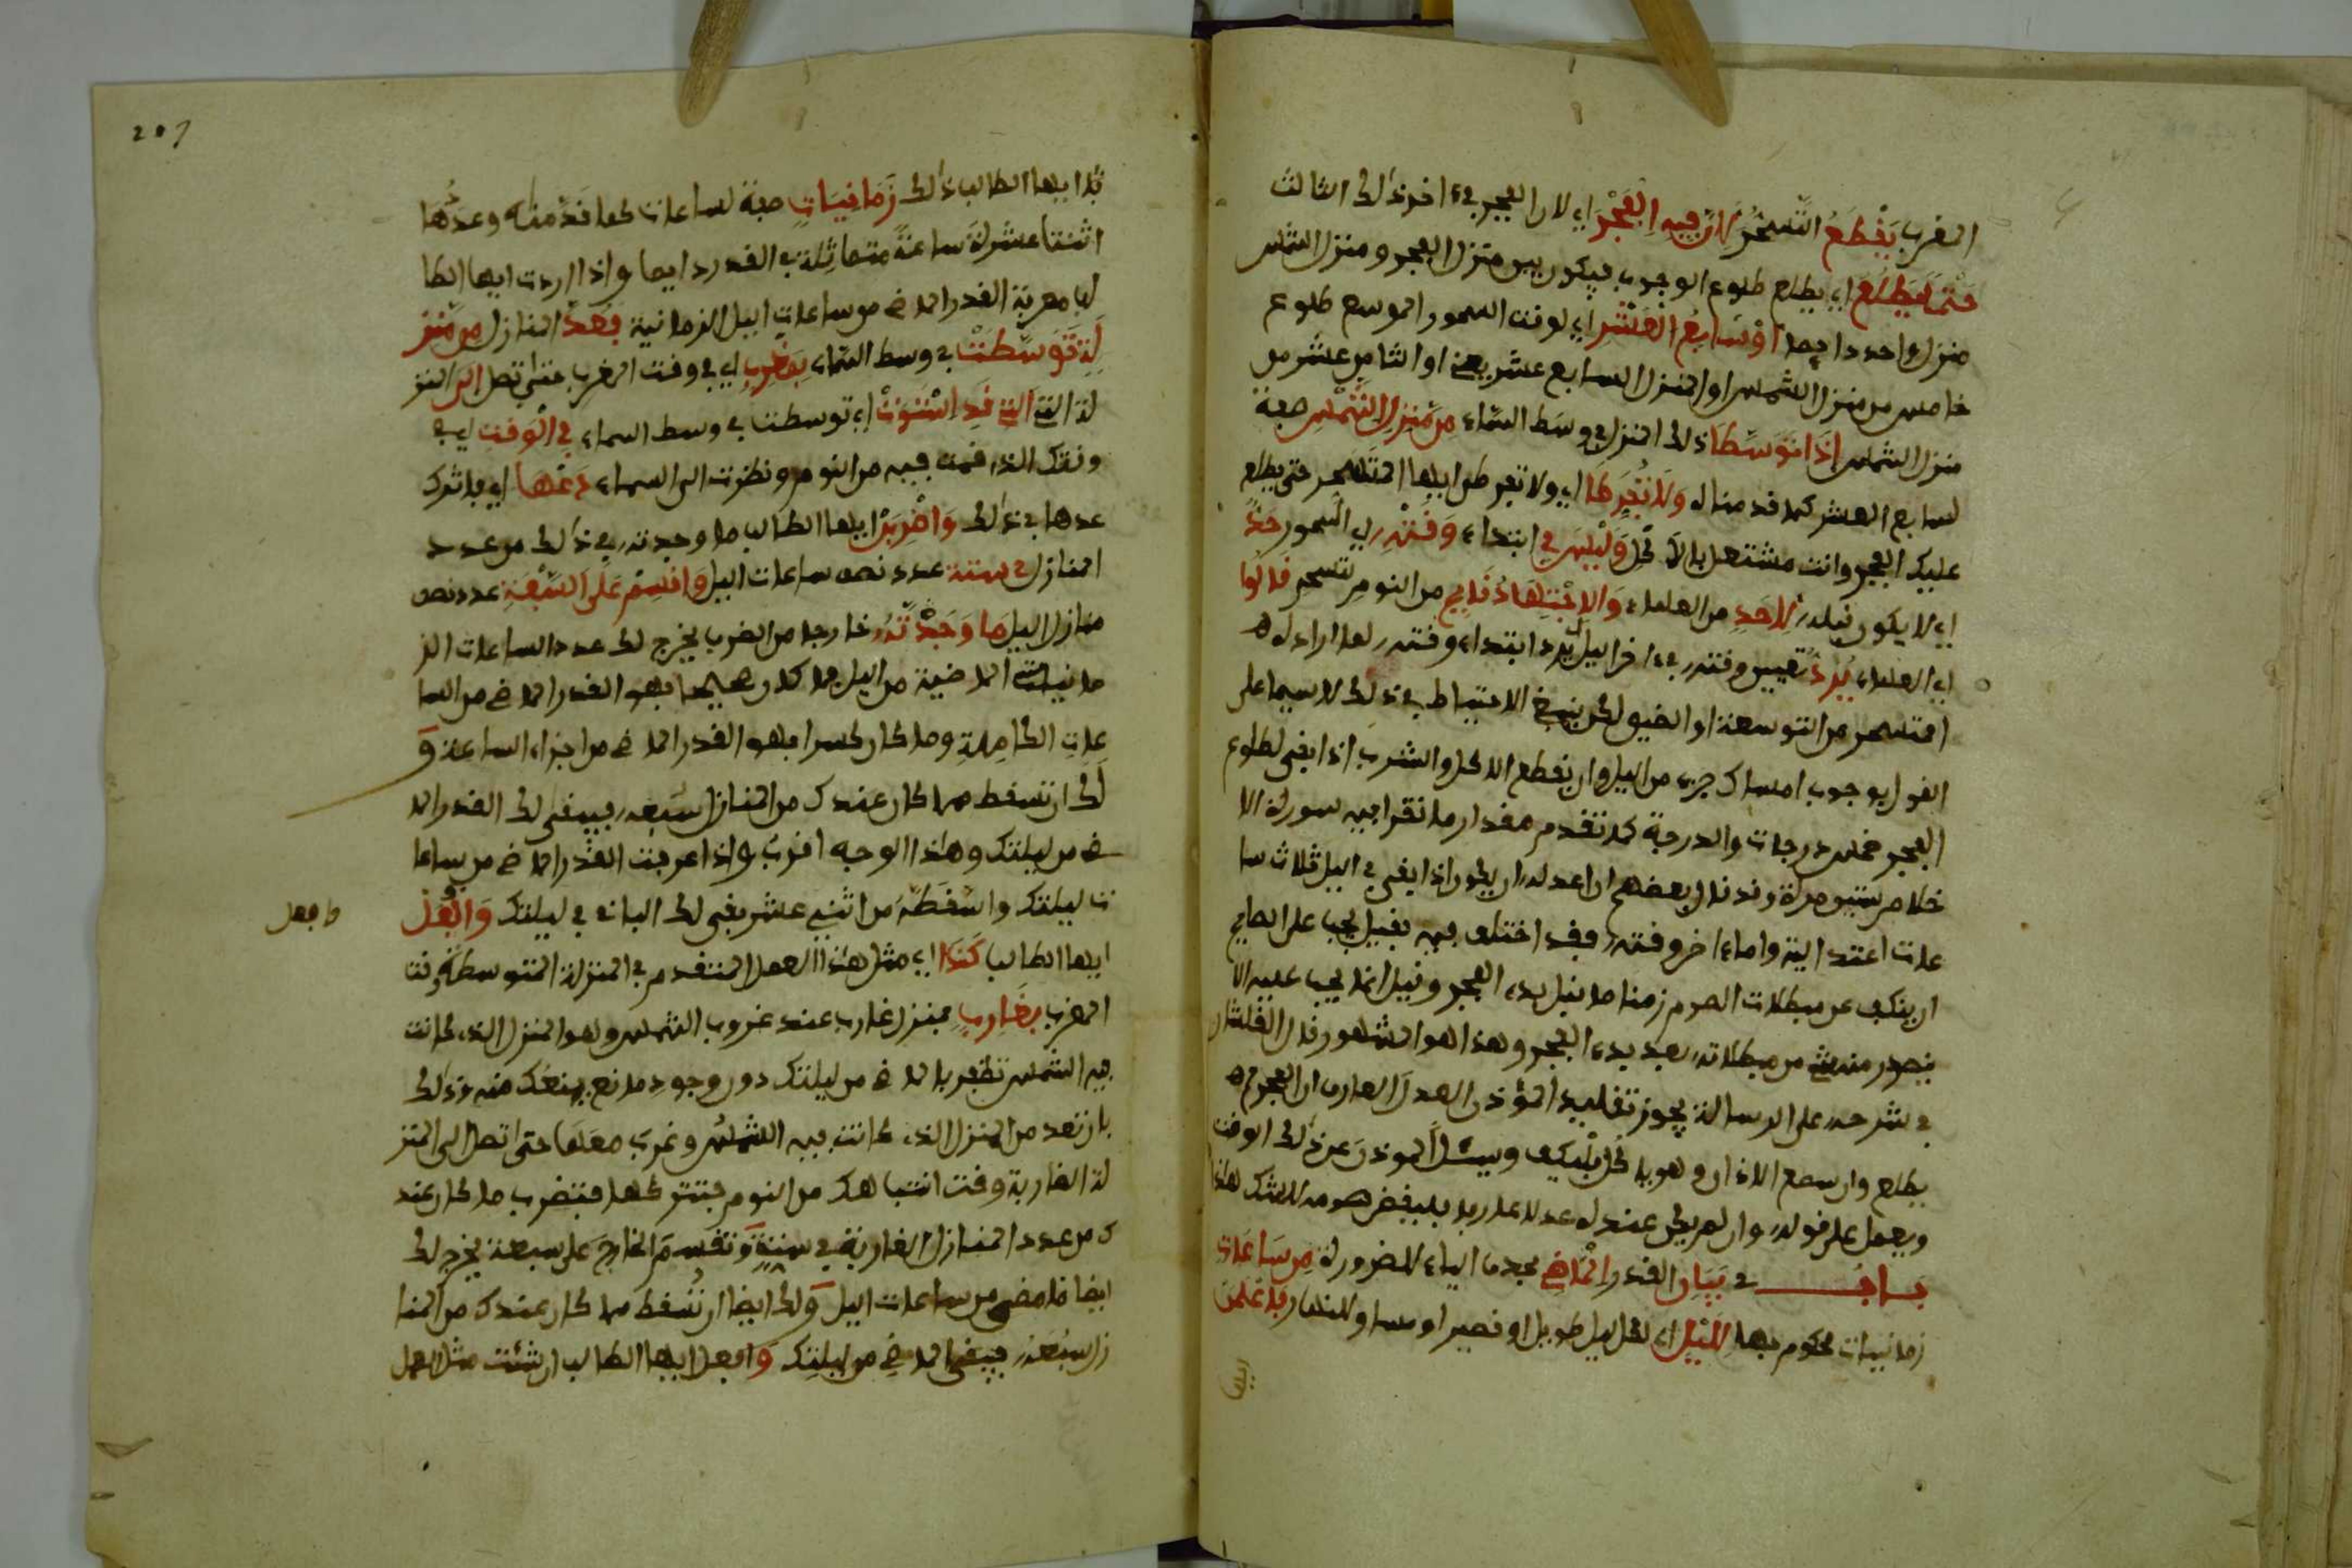 المغرب يَقْطَعُ التَّسَحُّرَ لِأَنَّ فِيهِ الْفَجْرَ اي لان الفجر في اخر ذلك الثالث
حَتْماً يَطْلُعُ اي يطلع طلوع الوجوب فيكون بين منزل الفجر ومنزل الشمس
منزل واحد دايما أَوْ سَابِعُ الْعَشْرِ اي لوقت السحور الموسع طلوع
خامس من منزل الشمس او المنزل السابع عشر يعني او الثامن عشر من
منزل الشمس إِذَا تَوَسَّطَا ذلك المنزل في وسط السماء مِنْ مَنْزِلِ الشَّمْسِ صفة
لسابع العشر كما قدمناه وَلَا تُفَرِّطَا اي ولا تفرطن ايها المتسحر حتى يطلع
عليك الفجر وانت مشتغل بالاكل وَلَيْسَ فِي ابتداء وَقْتِهِ اي السحور حَدٌّ
اي لا يكون قبله لِأَحَدِ من العلماء وَالِانْتِبَاهُ قال من النوم لتسحر قَالُوا
اي العلماء يُرَدُّ تعيين وقته في اخر اليل يرد ابتداء وقته لما اراده
المتسحر من التوسعة او الضيق لكن ينبغي الاحتياط في ذلك لا سيما على
القول بوجوب امساك جزء من اليل وان يقطع الاكل والشرب اذا بقي لطلوع
الفجر خمس درجات والدرجة كما تقدم مقدار ما تقرا فيه سورة الا
خلاص ستين مرة وقد قال بعضهم ان اعدله ان يكون اذا بقي في اليل ثلاث سا
عات اعتدالية واما اخر وقته فقد اختلف فيه فقيل يجب على الصايم
ان ينكف عن مبطلات الصوم زمنا ما قبل بدء الفجر وقيل انما يجب عليه الا
يصدر منه شيء من مبطلاته بعد بدء الفجر وهذا هو المشهور قال القلشاني
في شرحه على الرسالة يجوز تقليد المؤذن العدل العارف ان الفجر لم
يطلع وان سمع الاذان وهو ياكل فليكف ويسئل الموذن عن ذلك الوقت
ويعمل على قوله وان لم يكن عنده عدلا عارفا فليقض صومه للشك هذا
بــاب في بَيَانِ القدر الْمَاضِ بحذف الياء للضرورة مِنْ سَاعَاتِ
زمانيات محكوم بها لِلَّيْلِ اي لكل ليل طويل او قصير او مساو للنهار فَاعْلَمَنْ
207
يا ايها الطالب ذلك زَمَانِيَاتٍ صفة لساعات كما قدمناه وعدُّها
اثنتا عشرة ساعة متماثلة في القدر دايما واذا اردت ايها الطا
لب معرفة القدر الماض من ساعات اليل الزمانية فَعُدَّ المنازل مِنْ مَنْزِ
لَةٍ تَوَسَّطَتْ في وسط السماء بِمَغْرِبِ اي في وقت المغرب حتى تصل إِلَى المنز
لة التي الَّتِي قَدِ اسْتَوَتْ اي توسطت في وسط السماء فِي الْوَقْتِ اي في
وقتك الذي قمت فيه من النوم ونظرت الى السماء دَعْهَا اي فاترك
عدها في ذلك وَاضْرِبَنْ ايها الطالب ما وجدته في ذلك من عدد
المنازل فِي سِتَّةٍ عدد نصف ساعات اليل وَاقْسِمْ عَلَى السَّبْعَةِ عدد نصف
منازل اليل مَا وَجَدْتَهُ خارجا من الضرب يخرج لك عدد الساعات الز
مانيات الماضية من اليل فما كان صحيحا فهو القدر الماض من السا
عات الكاملة وما كان كسرا فهو القدر الماض من اجزاء الساعة و
لك ان تسقط مما كان عندك من المنازل سُبُعَهُ فيبقى لك القدر الما
ض من ليلتك وهذا الوجه اقرب واذا عرفت القدر الماض من ساعا
ت ليلتك واسقطتَه من اثني عشر بقي لك الباقي في ليلتك وَافْعَلْ
وافعل
ايها الطالب كَذَا اي مثل هذا العمل المتقدم في المنزلة المتوسطة وقت
المغرب بِغَارِبٍ بمنزل غارب عند غروب الشمس وهو المنزل الذي كانت
فيه الشمس تظفر بالماض من ليلتك دون وجود مانع يمنعك منه وذلك
بان تعد من المنزل الذي كانت فيه الشمس وغرب معها حتى تصل الى المنز
لة الغاربة وقت انتباهك من النوم فتتركها فتضرب ما كان عند
ك من عدد المنازل الغاربة في ستة وتقسم الخارج على سبعة يخرج لك
ايضا ما مضى من ساعات اليل ولك ايضا ان تسقط مما كان عندك من المنا
زل سُبُعَهُ فيبقى الماض من ليلتك وَافعل ايها الطالب ان شئت مثل العمل